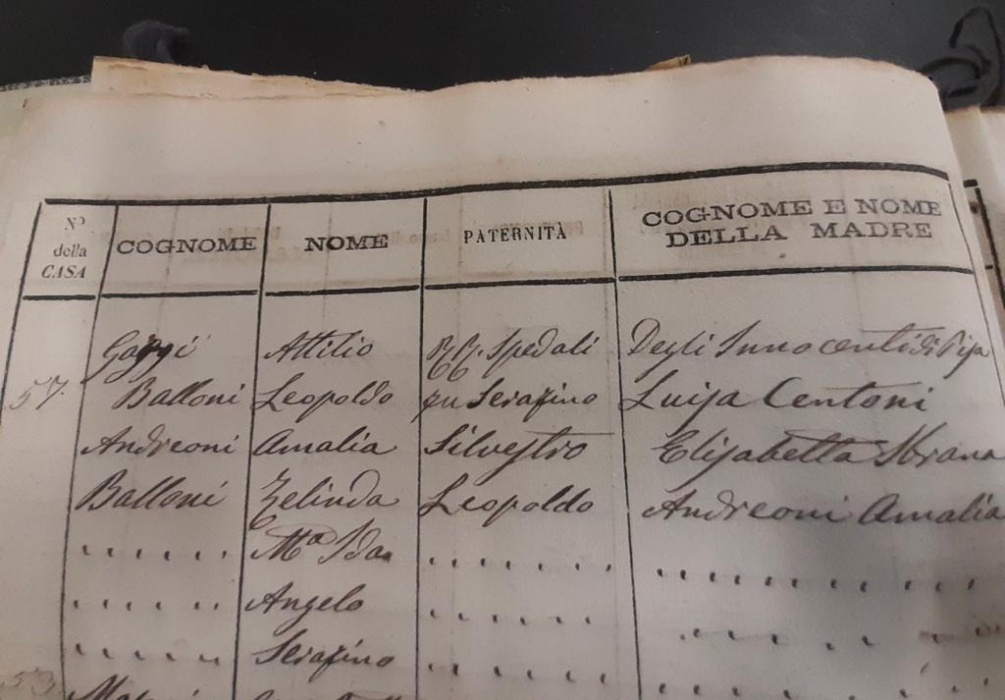 Nº della CASA
COGNOME
NOME
PATERNITÀ
COGNOME E NOME DELLA MADRE
Attilio RR. Spedali Degli Innocenti di Pisa
57. Balloni Leopoldo fu Serafino Luisa Centoni
Andreoni Amalia Silvestro Elisabetta
Balloni Zelinda Leopoldo Andreoni Amalia
" " " " " " Mª Ida " " " " " " " " " " " " " " "
" " " " " " Angelo " " " " " " " " " " " "
" " " " " " Serafino " " " " " " "